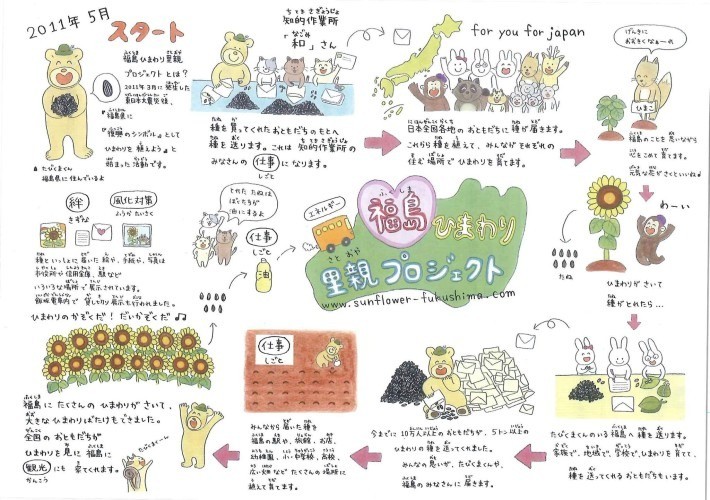 2011年 5月
スタート
福島ひまわり里親
プロジェクトとは？
2011年3月に発生した
東日本大震災後、
福島県に
『復興のシンボル』として
ひまわりを植えよう と
始まった活動です。
▲たびまくん
福島県に住んでいるよ
知的作業所
「和」さん
なごみ
種を育ててくれたおともだちのもとへ
種を送ります。これは 知的作業所の
みなさんの 仕事 になります。
しごと
for you for japan
日本全国各地の おともだちに 種が届きます。
これから 種を植えて、みんながそれぞれの
住む場所で ひまわりを育てます。
げんきに
おおきくなぁーれ
ひまこ
福島のことを思いながら
心をこめて育てます。
元気な花がさくといいね♪
わーい
たね
ひまわりが さいて
種がとれたら…
福島ひまわり
里親プロジェクト
www.sunflower-fukushima.com
エネルギー
仕事
しごと
油
とれた たねは
ぼくたちが
油にするよ
絆
きずな
風化対策
ふうかたいさく
種といっしょに届いた絵や、手紙や、写真は
市役所や信用金庫、駅など
いろいろな場所で展示されています。
飯坂電車内で 貸し切り展示も行われました。
ひまわりのかぞくだ！だいかぞくだ♫
福島にたくさんのひまわりがさいて、
大きなひまわりばたけもできました。
全国の おともだちが
ひまわりを見に 福島に
観光にも 来てくれます。
かんこう
たびまくーん
仕事
しごと
みんなから 届いた種を
福島の駅や、旅館、お店、
幼稚園、小・中学校、高校、
広い畑など たくさんの場所に
植えて育てます。
今までに 10万人以上のおともだちが、5トン以上の
ひまわりの種を送ってくれました。
みんなの思いが、たびまくんや、
福島のみなさんに 届きます。
たびまくんのいる福島へ種を送ります。
家族で、地域で、学校で、ひまわりを育て、
種を送ってくれるおともだちもいます。